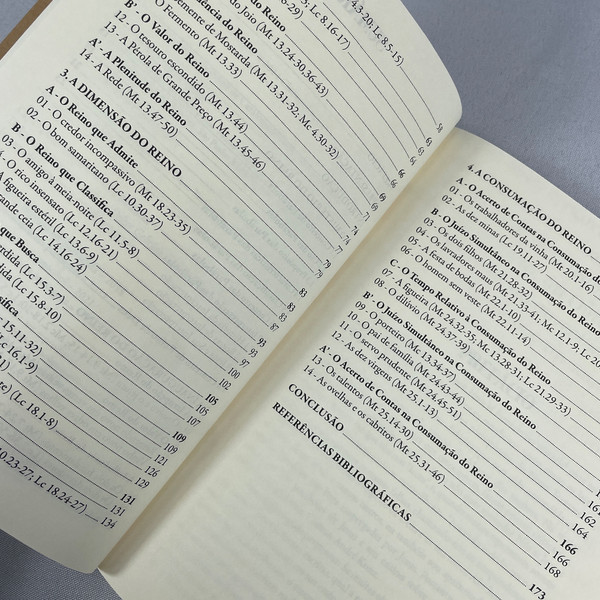 4,3.20; Lc 8,5-15)
; Lc 8,16-17)
do Joio (Mt 13,24-30,36-43)
dência do Reino
emente de Mostarda (Mt 13,31-32; Mc 4,30-32)
O Fermento (Mt 13,33)
B' - O Valor do Reino
12. O tesouro escondido (Mt 13,44)
13 - A Pérola de Grande Preço (Mt 13,45-46)
A' - A Plenitude do Reino
14 - A Rede (Mt 13,47-50)
3. A DIMENSÃO DO REINO
A - O Reino que Admite
01 - O credor incompassivo (Mt 18,23-35)
02. O bom samaritano (Lc 10,30-37)
B - O Reino que Classifica
03. O amigo à meia-noite (Lc 11,5-8)
- O rico insensato (Lc 12,16-21)
figueira estéril (Lc 13,6-9)
ande ceia (Lc 14,16-24)
que Busca
erdida (Lc 15,3-7)
dida (Lc 15,8-10)
sifica
c 15,11-32)
(Lc 16,1-9)
re) (Lc 18,1-8)
0,23-27; Lc 18,24-27)
58
61
63
66
66
67
69
69
71
74
77
79
79
83
83
83
87
93
93
97
100
102
105
105
107
109
109
121
126
129
131
131
134
4. A CONSUMAÇÃO DO REINO
A - O Acerto de Contas na Consumação do
01 - Os trabalhadores da vinha (Mt 20,1-16)
02 - As dez minas (Lc 19,11-27)
B - O Juízo Simultâneo na Consumação do Reino
03 - Os dois filhos (Mt 21,28-32)
04 - Os lavradores maus (Mt 21,33-41; Mc 12,1-9; Lc 20
05 - A festa de bodas (Mt 22,1-10)
06 - O homem sem veste (Mt 22,11-14)
C - O Tempo Relativo à Consumação do Reino
07 - A figueira (Mt 24,32-35; Mc 13,28-31; Lc 21,29-33)
08 - O dilúvio (Mt 24,37-39)
B' - O Juízo Simultâneo na Consumação do Reino
09 - O porteiro (Mc 13,34-37)
10 - O pai de família (Mt 24,43-44)
11 - O servo prudente (Mt 24,45-51)
12 - As dez virgens (Mt 25,1-13)
A' - O Acerto de Contas na Consumação do Reino
13 - Os talentos (Mt 25,14-30)
14 - As ovelhas e os cabritos (Mt 25,31-46)
CONCLUSÃO
REFERÊNCIAS BIBLIOGRÁFICAS
162
164
166
166
168
173